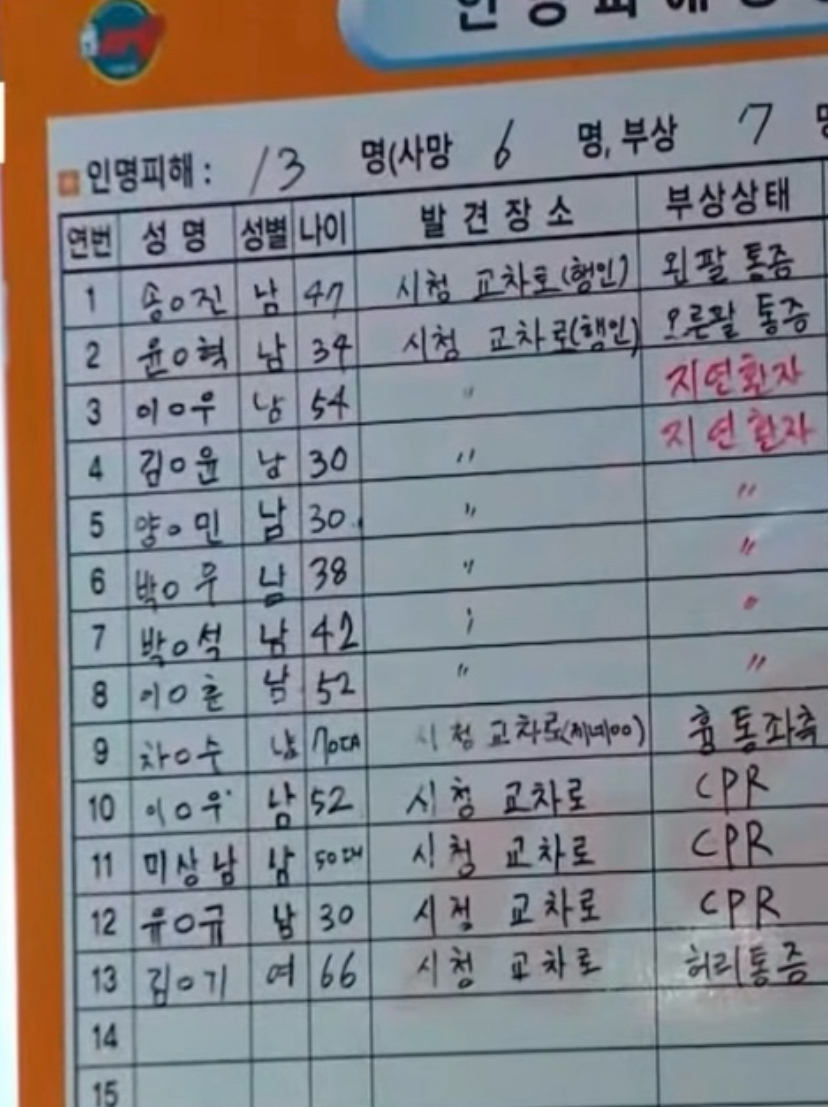 인명피해
인명피해 : 13 명(사망 6 명, 부상 7 명
연번 성명 성별 나이 발견장소 부상상태
1 송O진 남 47 시청 교차로(행인) 왼팔 통증
2 윤O혁 남 34 시청 교차로(행인) 오른팔 통증
3 이O우 남 54 〃 지연환자
4 김O윤 남 30 〃 지연환자
5 양O민 남 30 〃 〃
6 박O우 남 38 〃 〃
7 박O석 남 42 〃 〃
8 이O훈 남 52 〃 〃
9 차O수 남 70대 시청 교차로(제네OO) 흉통좌측
10 이O우 남 52 시청 교차로 CPR
11 미상남 남 50대 시청 교차로 CPR
12 유O규 남 30 시청 교차로 CPR
13 김O기 여 66 시청 교차로 허리통증
14
15